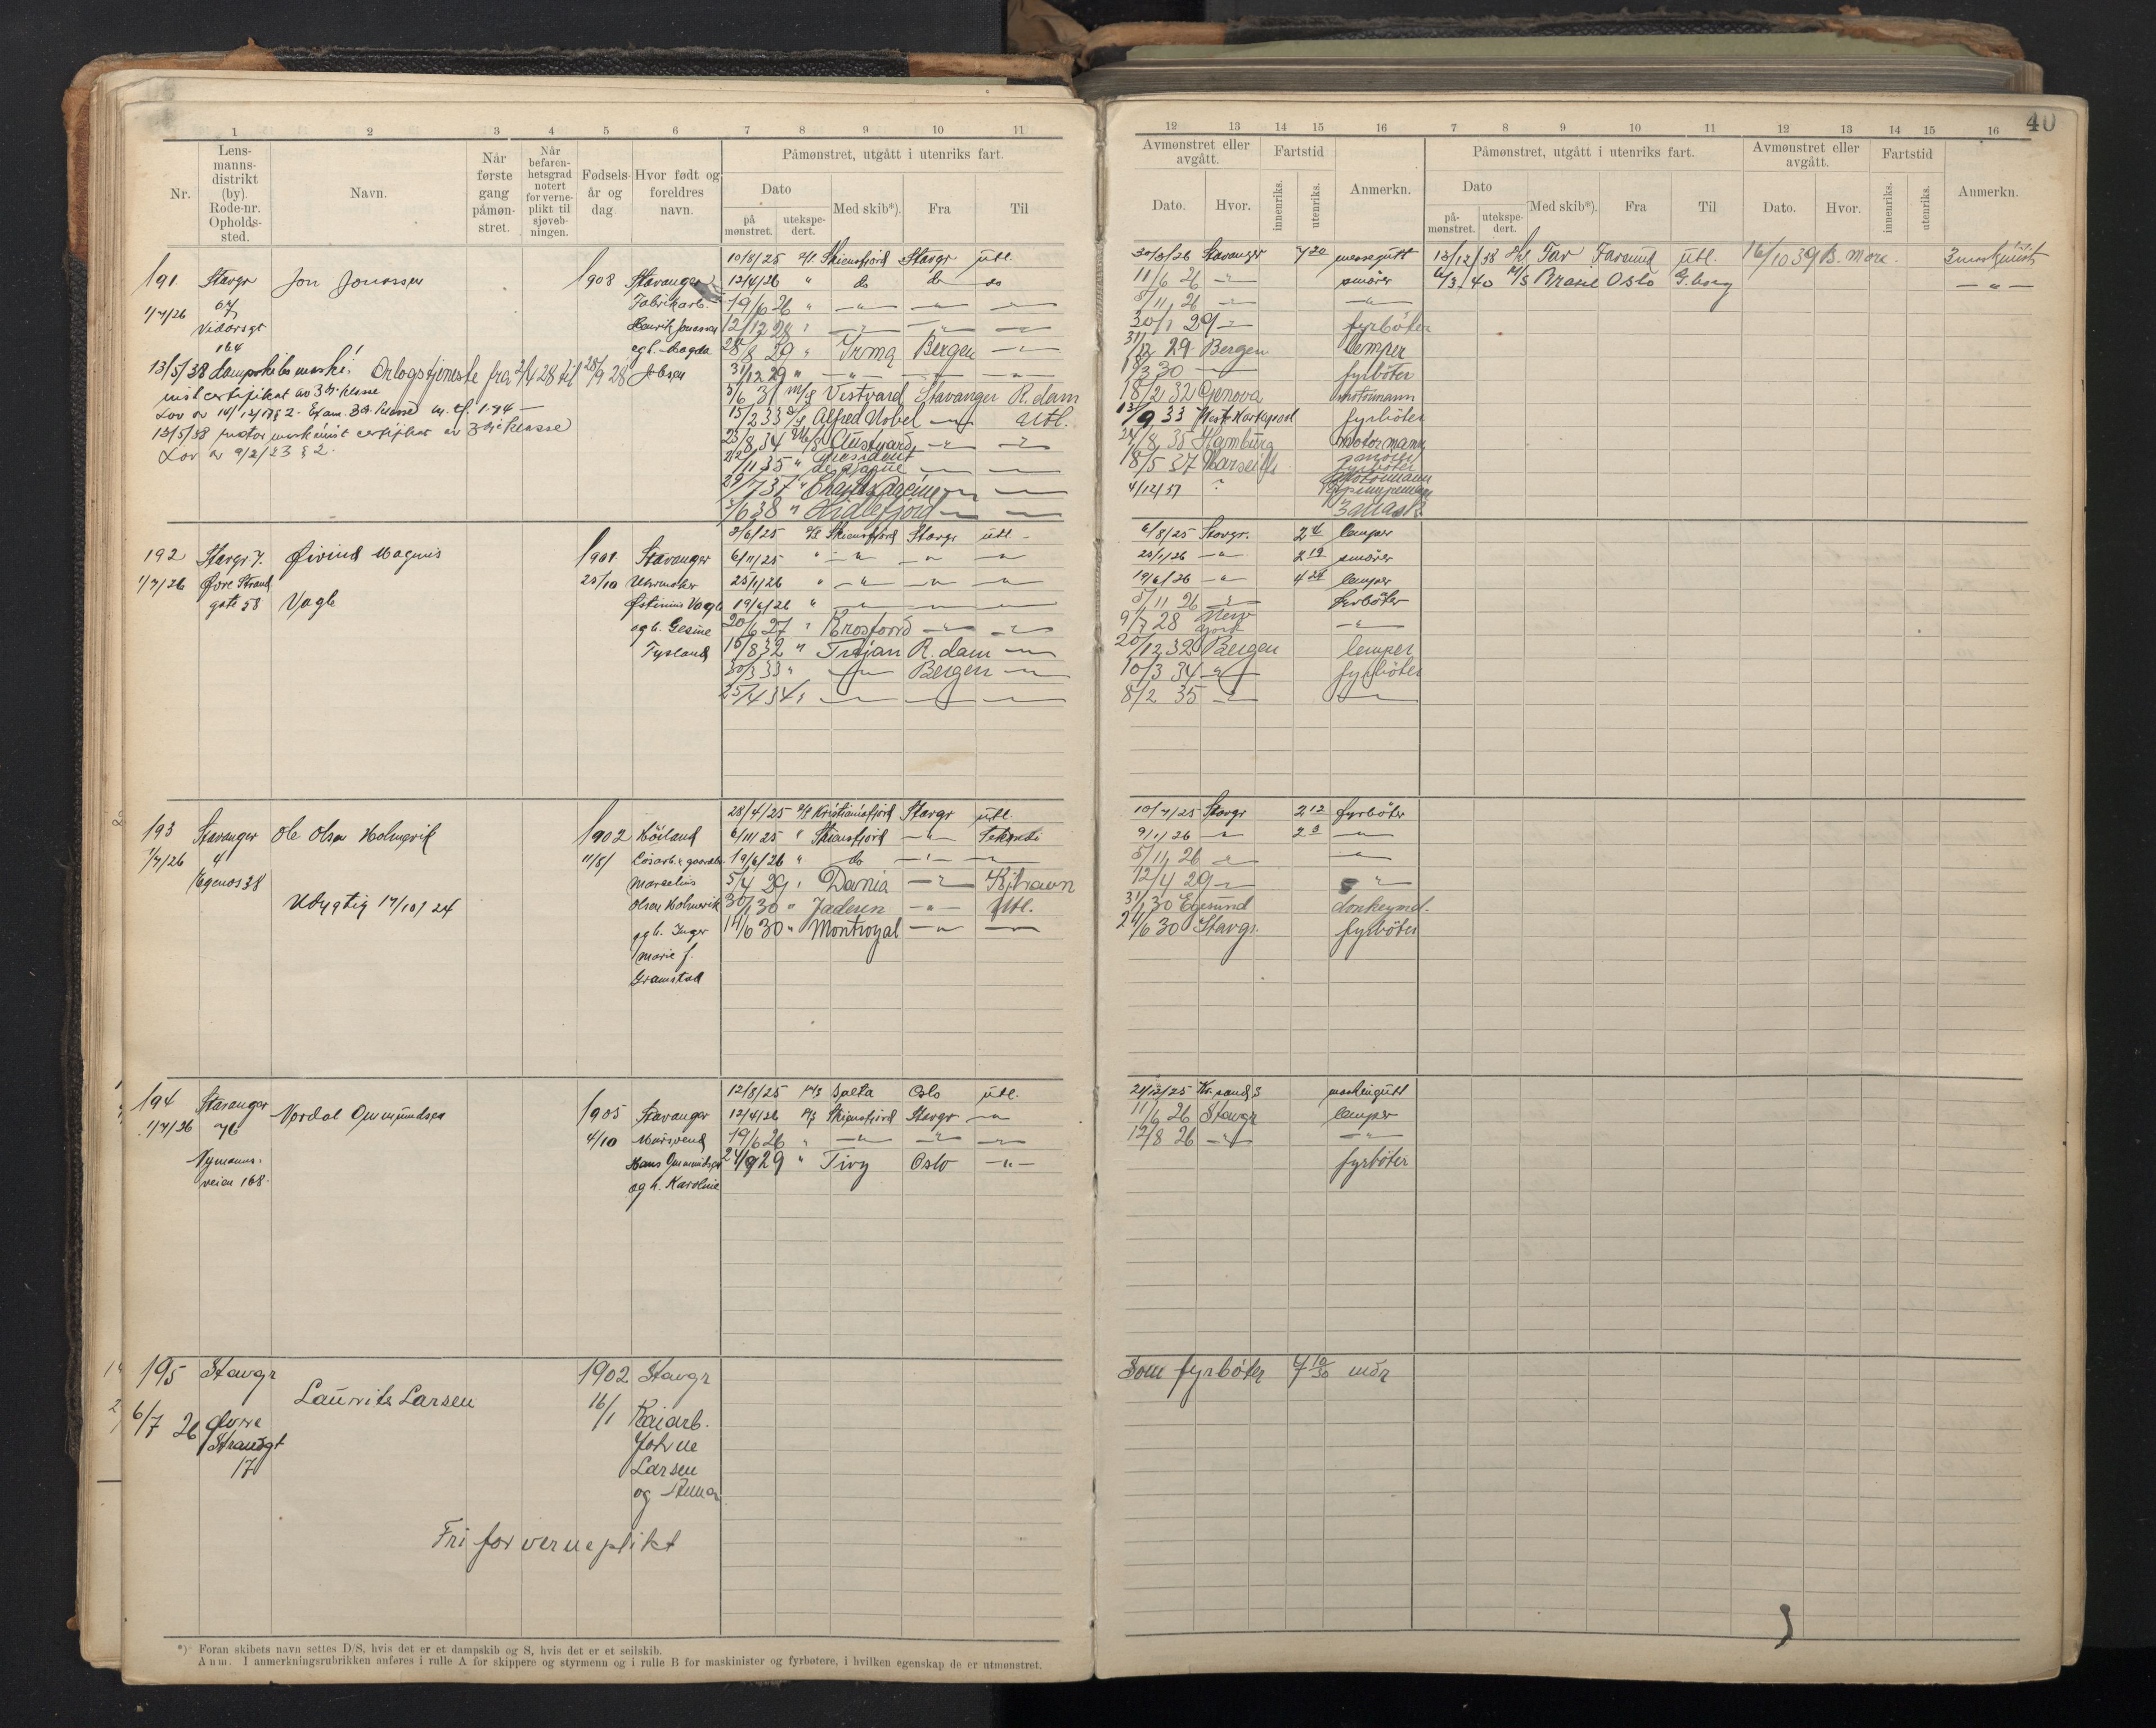 40
1 2 3 4 5 6 7 8 9 10 11
Nr.
Lens-
manns-
distrikt
(by).
Rode-nr.
Opholds-
sted.
Navn.
Når
første
gang
påmøn-
stret.
Når
befaren-
hetsgrad
notert
for verne-
plikt til
sjøveb-
ningen.
Fødsels-
år og
dag
Hvor født og
foreldres
navn.
Påmønstret, utgått i utenriks fart.
Dato
på
mønstret.
utekspe-
dert.
Med skib*).
Fra
Til
12 13 14 15 16 7 8 9 10 11 12 13 14 15 16
Avmønstret eller
avgått.
Dato. Hvor.
Fartstid
innenriks.
utenriks.
Anmerkn.
Påmønstret, utgått i utenriks fart.
Dato
på-
mønstret.
utekspe-
dert.
Med skib*).
Fra
Til
Avmønstret eller
avgått.
Dato. Hvor.
Fartstid
innenriks.
utenriks.
Anmerkn.
191 Stavgr Jon Jonassen 1908 Stavanger
1/7/26 Fabrikarb.
Vidarsgt Henrik Jonassen
164 og h. Magda
Jobsen
13/5/38 Orlogstjeneste fra 2/4 28 til 28/9 28
inist certifikat av 3dje klasse
13/5/38 motormaskinist certifikat av 3dje klasse
Lov av 9/2/23 § 2.
10/8/25 Skiensfjord Stavgr utl.
12/4/26 " do do do
19/6 26 " — " — — " — — " —
12/12 28 " — " — — " — — " —
28/8 29 " Irma Bergen — " —
31/12 29 " — " — — " — — " —
5/6 31 M/S Vestvard Stavanger R.dam
15/2 33 Alfred Nobel — " — Utl.
23/8 34 M/S Austvard — " — — " —
/11 35 " President
— " — — " —
29/7 37 " — " — — " —
/6 38 " Hidlefjord — " — — " —
30/3/26 Stavanger 7 20 messegutt
11/6 26 — " — smører
5/11 26 — " — — " —
30/1 29 — " — fyrbøter
31/12 29 Bergen lemper
3 30 — " — fyrbøter
18/2 32 Genova motormann
/9 33 fyrbøter
/8 35 Hamburg Motormann
18/5 37 Marseille
fyrbøter
4/12/37 ? Motormann
13/12/38 Tav Farsund utl. 16/10 39 B. More 3 maskinist
/3 40 M/S Brasil Oslo G.borg — " —
192 Stavgr 7. Øivind Magnus 1901 Stavanger
1/7/26 Øvre Strand 25/10 Urmaker
gate 58 Vagle Østinius Vagle
og h. Gesine
Tysland
2/6/25 Skiensfjord Stavgr utl.
6/11/25 " — " — — " — — " —
25/1/26 " — " — — " — — " —
19/6/26 " — " — — " — — " —
20/6 27 " Krosfoord — " — — " —
16/8 32 " Trajan R.dam — " —
30/3 33 " — " — Bergen — " —
25/4 34 " — " — — " — — " —
6/8/25 Stavgr. 2 4 lemper
25/1/26 — " — 2 19 smører
19/6/26 — " — 4 24 lemper
5/11 26 — " — fyrbøter
9/7 28 New
York — " —
20/12 32 Bergen lemper
10/3 34 — " — fyrbøter
8/2 35 — " — — " —
193 Stavanger Ole Olsen Holmevik 1902 Höiland
1/7/26 4 11/8 Løsarb. &
Egenes 38 Marselius
Udygtig 17/10/24 Olsen Holmevik
og h. Inger
Marie f.
Gramstad
28/4/25 Kristianiafjord Stavgr utl.
6/11/25 " Skiensfjord — " —
19/6/26 " do — " — — " —
5/4 29 " Dania — " — Kjbhavn
30/1 30 " Jaderen — " — Utl.
14/6 30 " Montroyal — " — — " —
10/7/25 Stavgr 2 12 fyrbøter
9/1/26 — " — 2 3 — " —
5/11 26 — " — — " —
12/4 29 — " — — " —
31/1 30 Egersund donkeymd.
2/6 30 Stavgr. fyrbøter
194 Stavanger Nordal Ommundsen 1905 Stavanger
1/7/26 76 4/10 Mursvend
Nymanns- Hans Ommundsen
veien 168. og h. Karoline
12/8/25 Salta Oslo utl.
12/4/26 Skiensfjord Stavgr — " —
19/6 26 " — " — — " — — " —
24/9 29 " Tivy Oslo — " —
21/12/25 Kr.sand S maskingutt
11/6 26 Stavgr lemper
12/8 26 — " — — " —
fyrbøter
195 Stavgr Laurits Larsen 1902 Stavgr
6/7 26 Øvre 16/1 Kaiarb.
Strandgt Johne
17 Larsen
og Anna
Fri for verneplikt
Som fyrbøter 7 10/30 mdr
*) Foran skibets navn settes D/S, hvis det er et dampskib og S, hvis det er et seilskib.
Anm. I anmerkningsrubrikken anføres i rulle A for skippere og styrmenn og i rulle B for maskinister og fyrbøtere, i hvilken egenskap de er utmønstret.